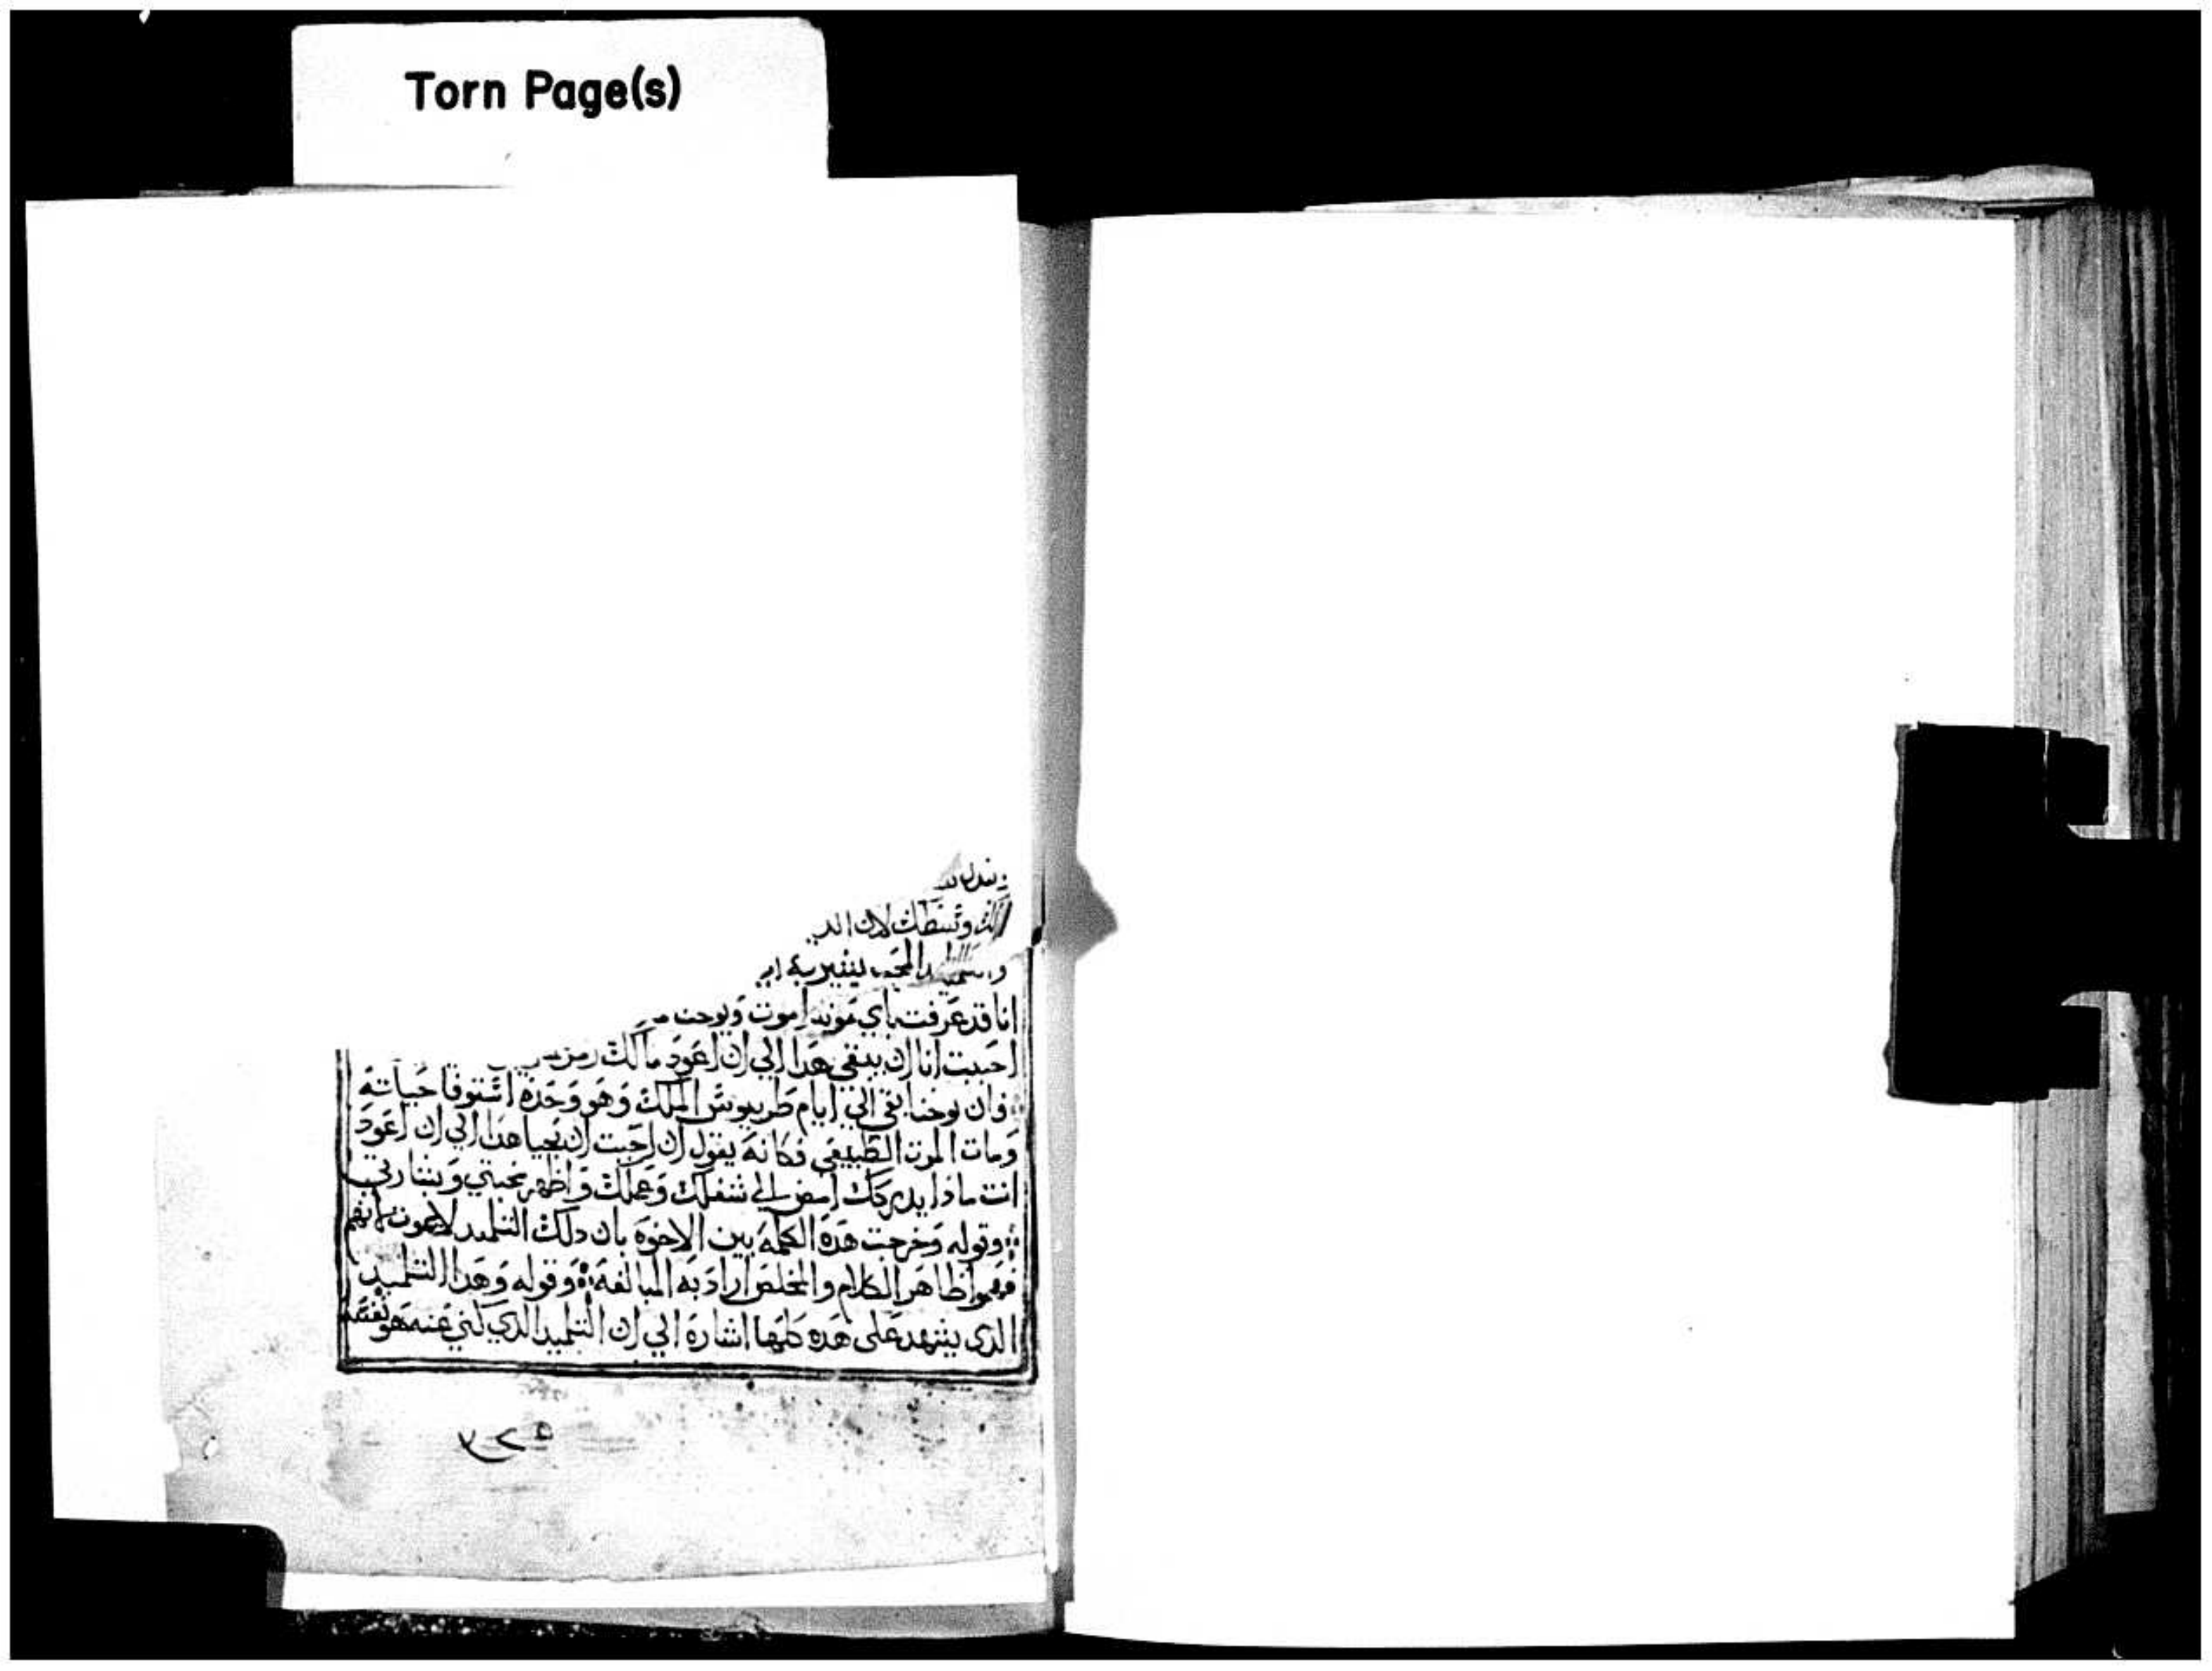 Torn Page(s)
وتسطك لان الد
يشير به
انا قد عرفت باي موته اموت ويوحنا
احببت انا ان يبقي هدا الي ان اعود مالك
فان يوحنا بقي الي ايام طريبوس الملك وهو وحده استوفا حياته
ومات الموت الطبيعي فكانه يقول ان احببت ان يحيا هدا الي ان اعود
انت ماذا يدركك امض الي شغلك وعملك واظهر محبتي وبشارتي
وقوله وخرجت هده الكلمه بين الاخوه بان دلك التلميد لايموت
فهموا ظاهر الكلام والمخلص اراد به المبالغه وقوله وهدا التلميد
الدي يشهد على هده كلها اشاره الي ان التلميد الدي كني عنه هو